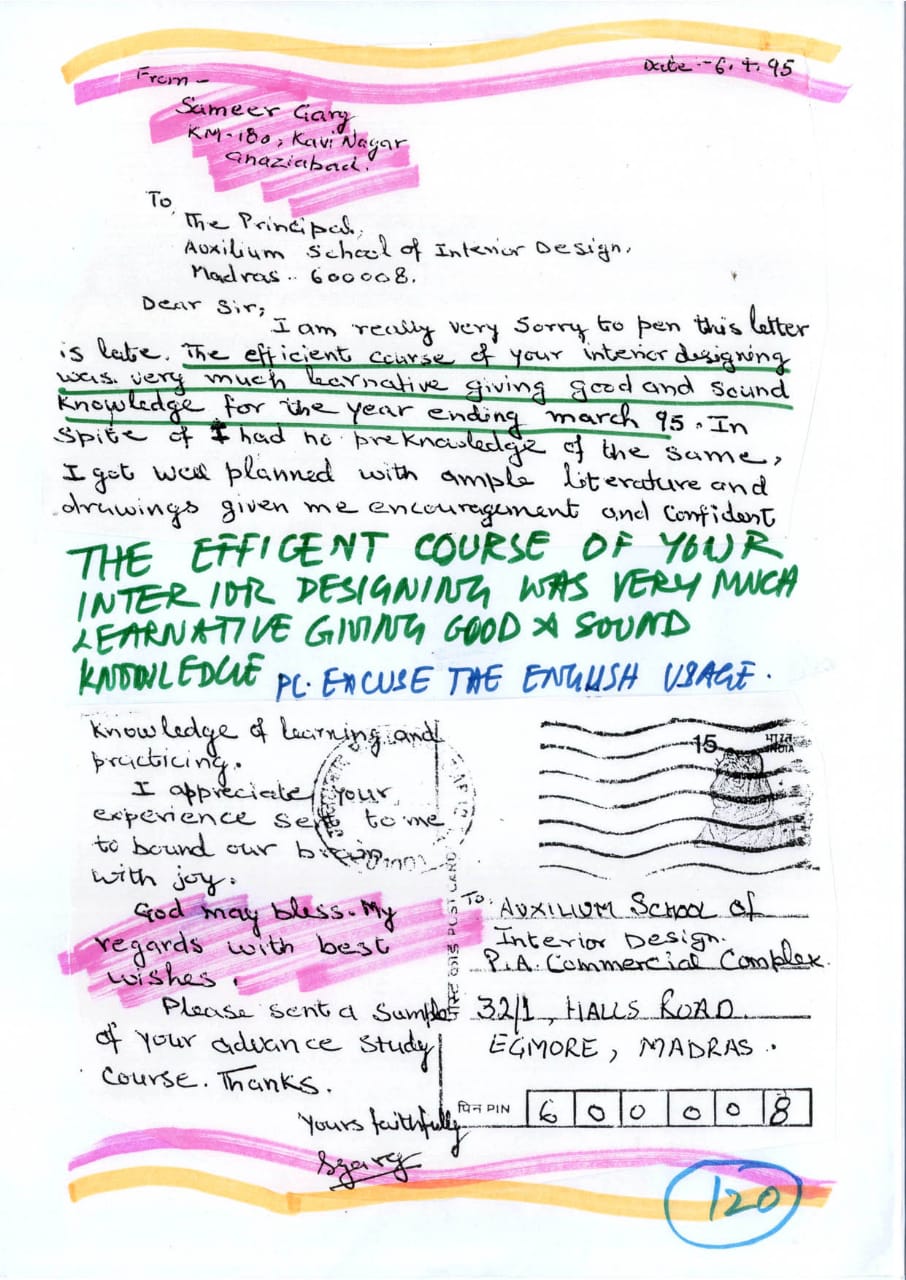 Date :- 6.4.95
From -
Sameer Garg
KM-180, Kavi Nagar
Ghaziabad.
To,
The Principal,
Auxilium School of Interior Design,
Madras - 600008.
Dear Sir,
I am really very sorry to pen this letter
is late. The efficient course of your interior designing
was very much learnative giving good and sound
knowledge for the year ending march 95. In
spite of I had no preknowledge of the same,
I got well planned with ample literature and
drawings given me encouragement and confident
THE EFFICENT COURSE OF YOUR
INTERIOR DESIGNING WAS VERY MUCH
LEARNATIVE GIVING GOOD & SOUND
KNOWLEDGE PL. EXCUSE THE ENGLISH USAGE.
knowledge of learning and
practicing.
I appreciate your
experience sent to me
to bound our brain
with joy.
God may bless. My
regards with best
wishes.
Please sent a sample
of your advance study
course. Thanks.
Yours faithfully
SGarg
15 भारत
INDIA
POST CARD
To: AUXILIUM School of
Interior Design.
P.A. Commercial Complex.
32/1, HALLS ROAD
EGMORE, MADRAS.
पिन PIN 600008
120